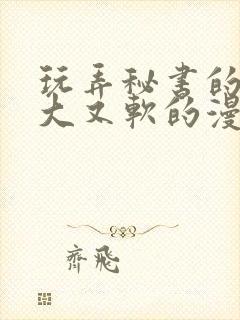 玩弄秘书的
大又软的漫
齊飛